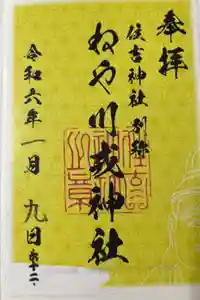 奉拝
住吉神社別称
ねや川戎神社
令和六年一月九日